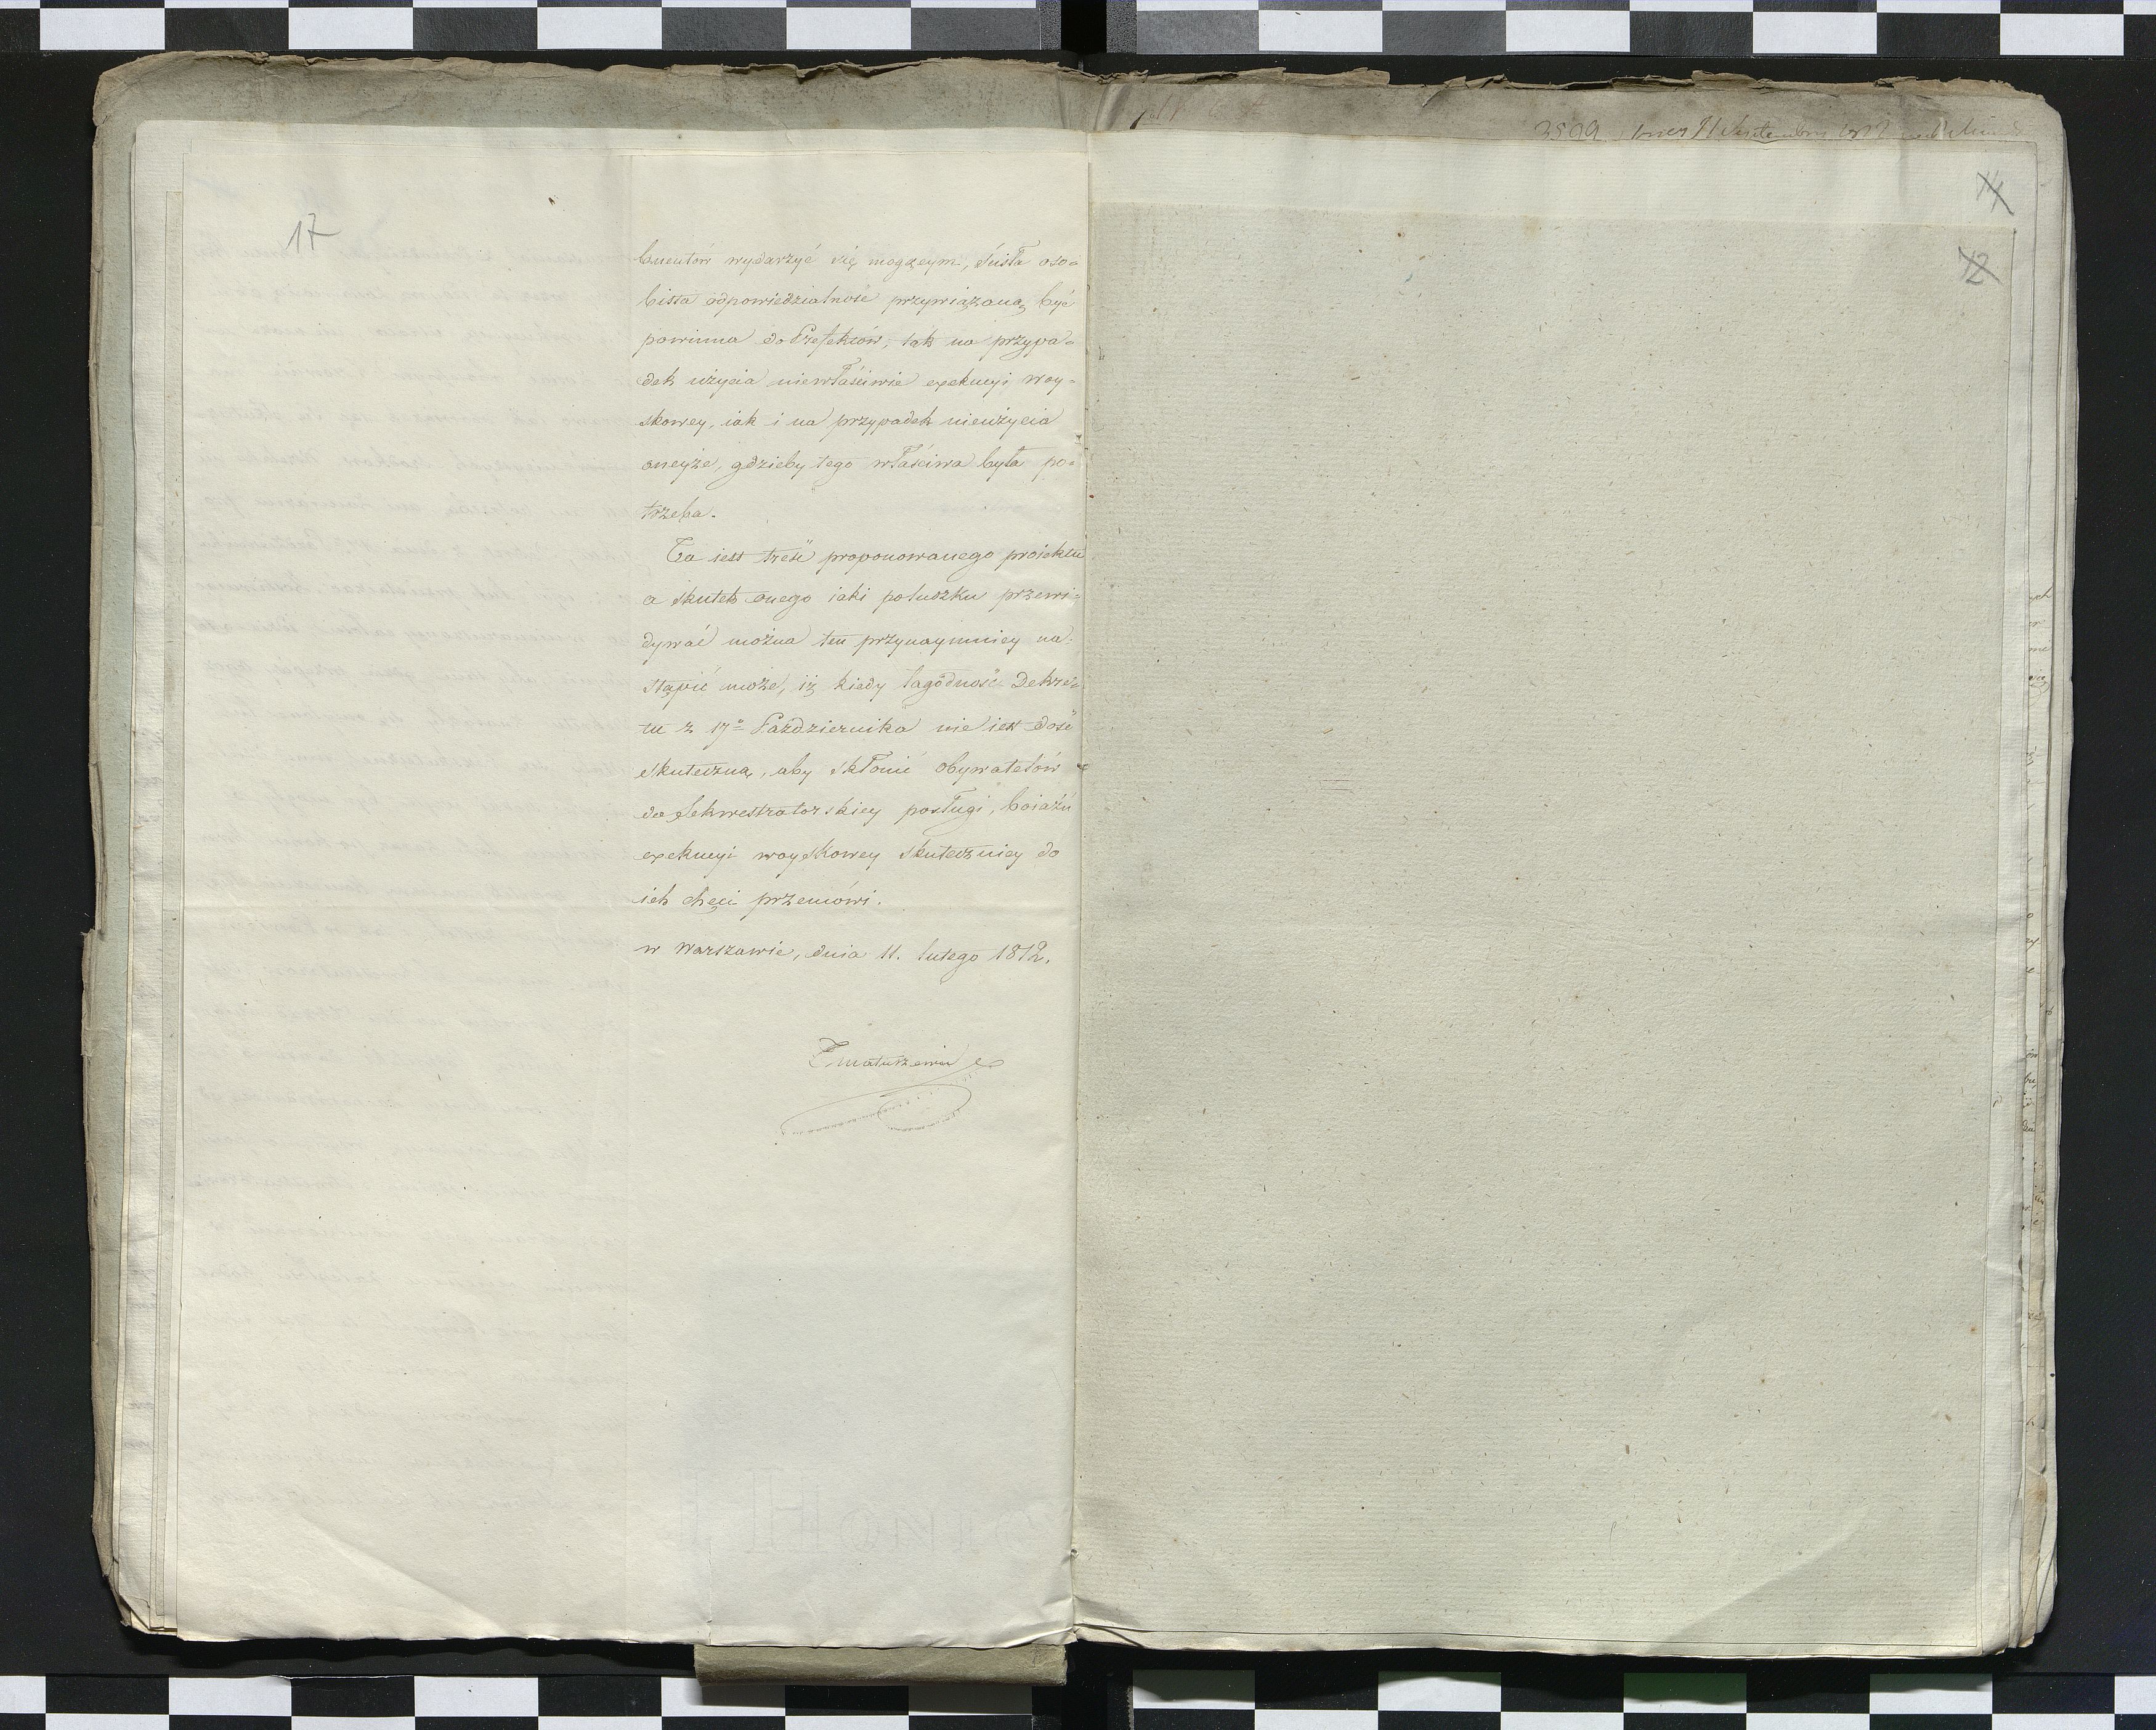 17
buentów wydarzyć się mogącym, ścisła oso=
bista odpowiedzialność przywiązaną być
powinna do Prefektów, tak na przypa=
dek użycia niewłaściwie exekucyi woy=
skowey, iak i na przypadek nieużycia
oneyże, gdzieby tego właściwa była po=
trzeba.
Ta iest treść proponowanego proiektu
a skutek onego iaki poluszku przewi=
dywać można ten przynaymniey na=
stąpić może, iż kiedy łagodność Dekre=
tu z 17º Października nie iest dość
skuteczną, aby skłonić obywatelów
do Sekwestratorskiey posługi, boiaźń
exekucyi woyskowey skuteczniey do
ich chęci przemówi.
w Warszawie, dnia 11. lutego 1812.
TMatuszewic
3509
14
12